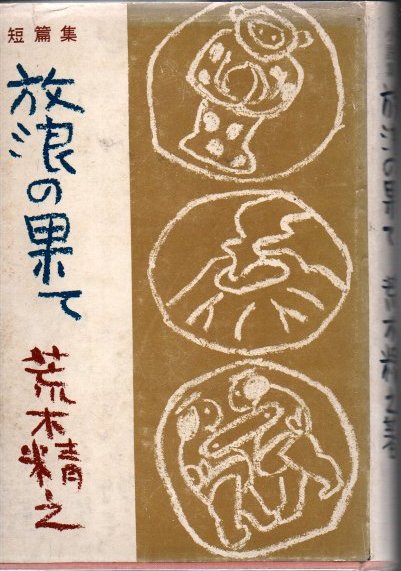 短篇集
放浪の果て
荒木精之
放浪の果て 荒木精之著